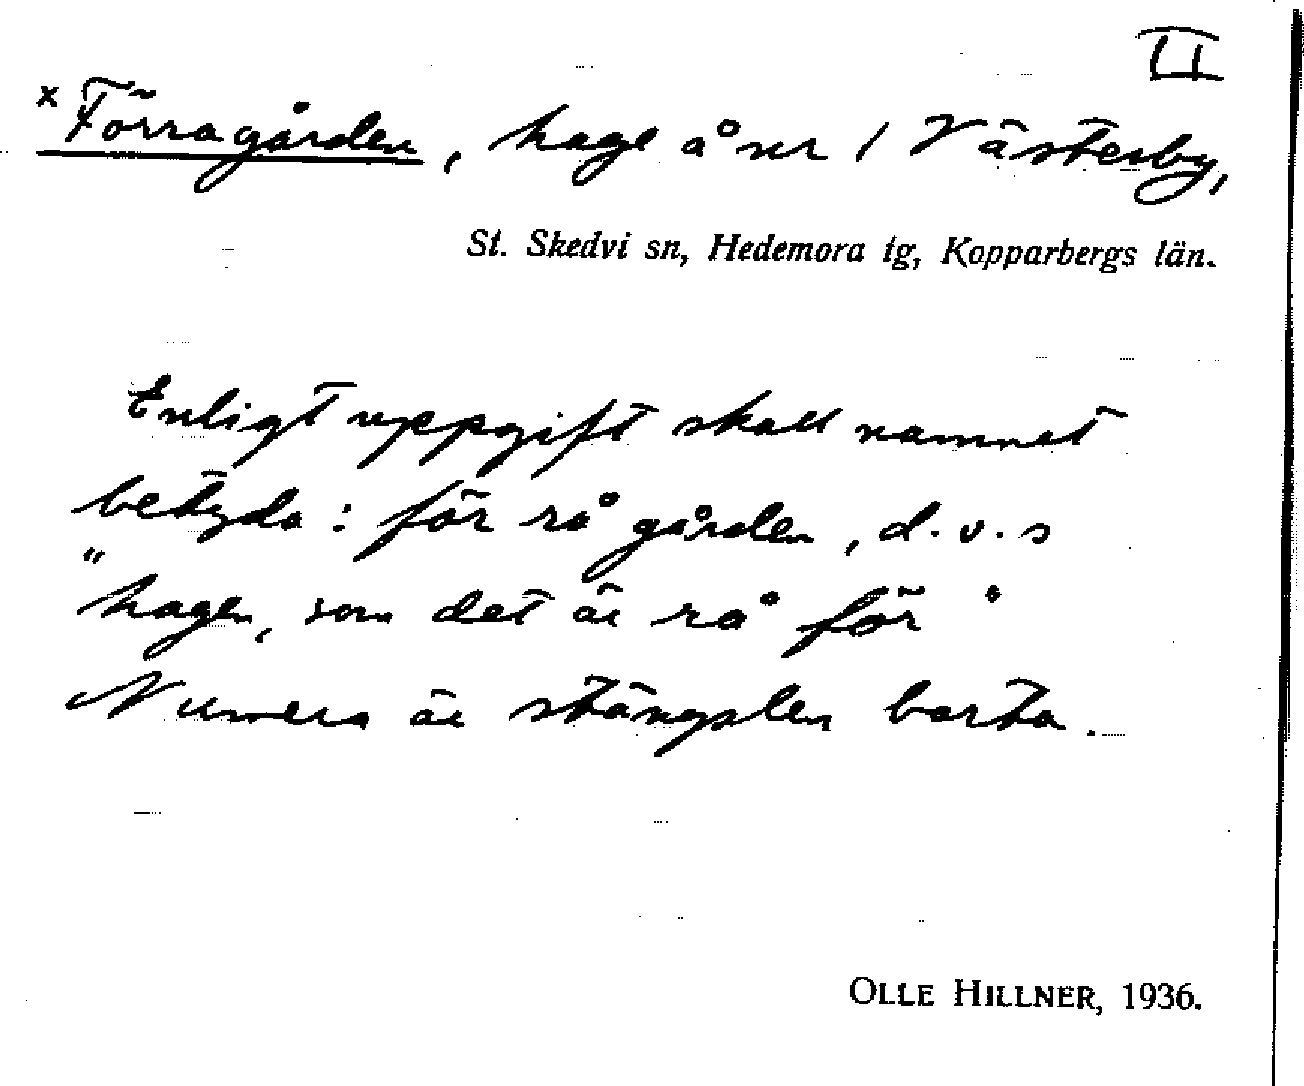 II
x Förragården, hage å nr 1 Västerby,
St. Skedvi sn, Hedemora tg, Kopparbergs län.
Enligt uppgift skall namnet
betyda: för rå gården, d.v.s
"hagen, som det är rå för"
Numera är stängslen borta.
OLLE HILLNER, 1936.